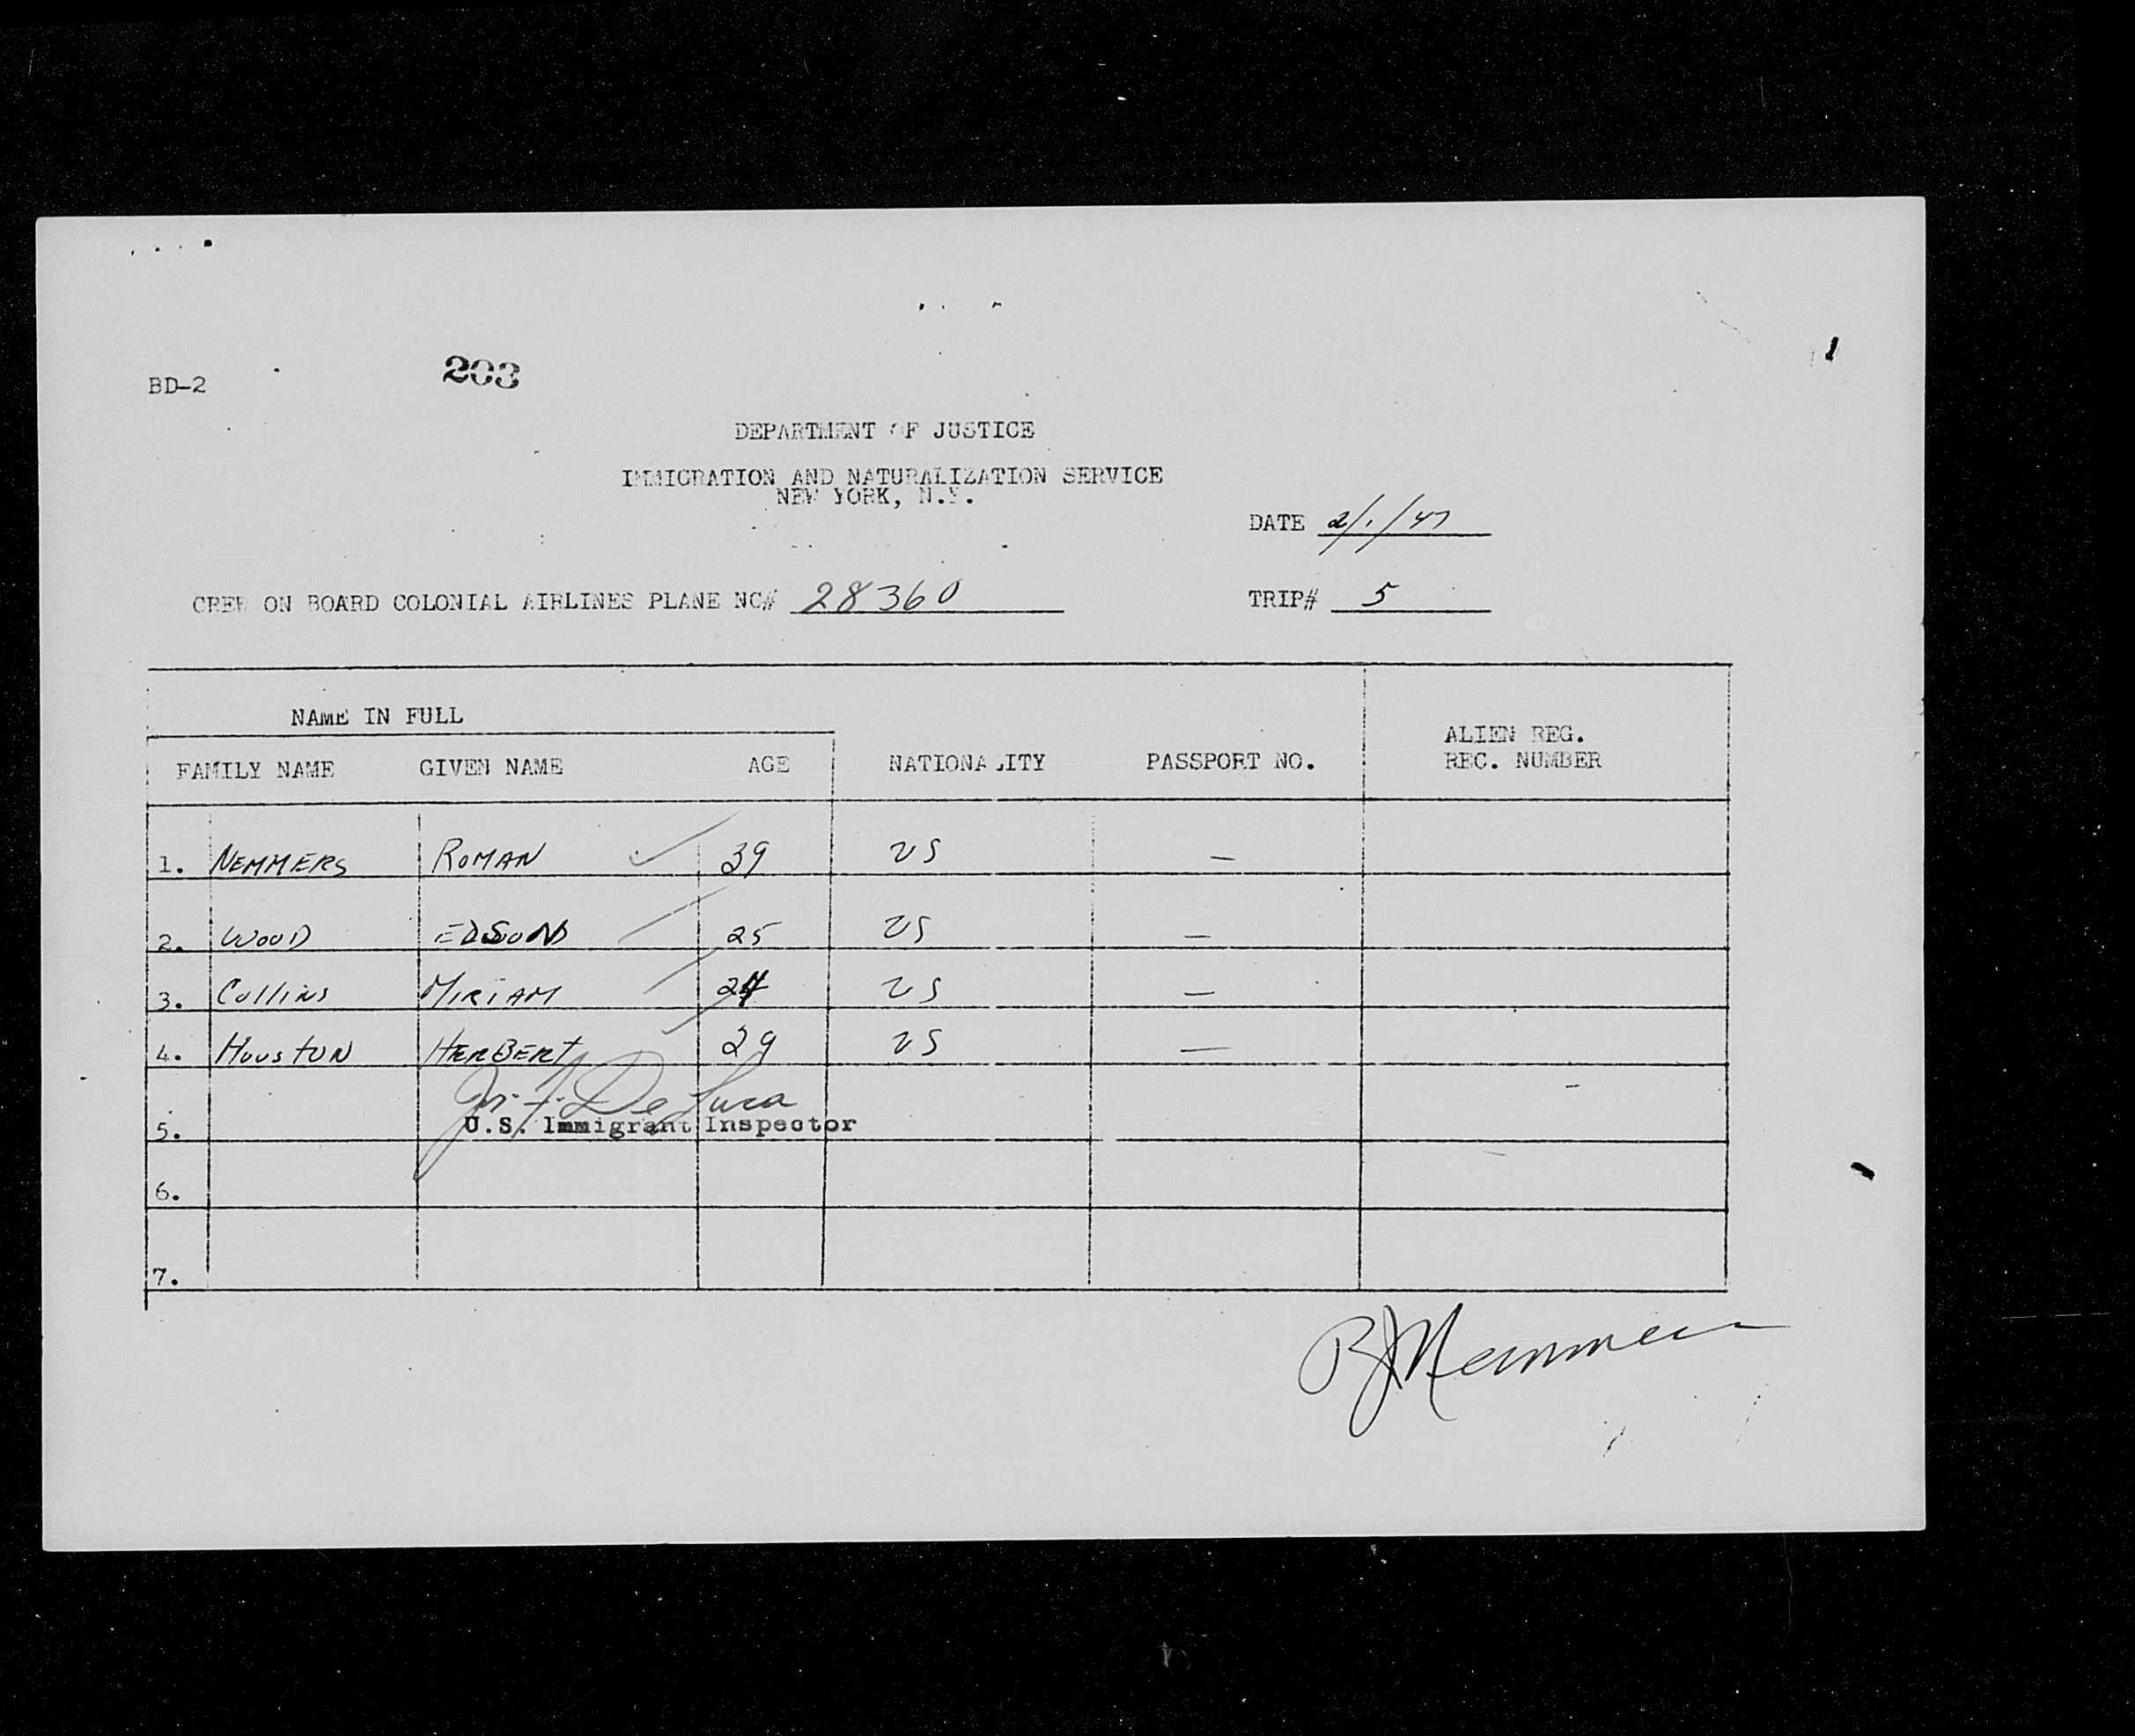 BD-2 203
DEPARTMENT OF JUSTICE
IMMIGRATION AND NATURALIZATION SERVICE
NEW YORK, N.Y.
DATE 2/1/47
CREW ON BOARD COLONIAL AIRLINES PLANE NC# 28360 TRIP# 5
NAME IN FULL
FAMILY NAME GIVEN NAME AGE NATIONALITY PASSPORT NO. ALIEN REG. REC. NUMBER
1. NEMMERS ROMAN 39 US —
2. WOOD EDSON 25 US —
3. Collins MIRIAM 24 US —
4. HOUSTON HERBERT 29 US —
De Luca
5. U.S. Immigrant Inspector
6.
7.
RJ Nemmers